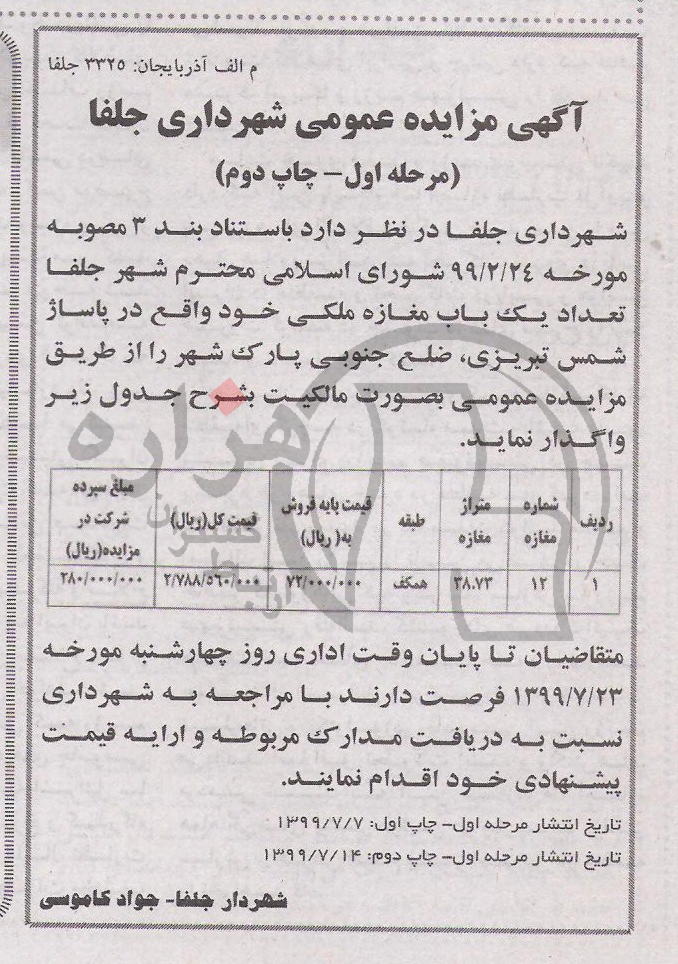 م الف آذربایجان: ۳۳۲۵ جلفا
آگهی مزایده عمومی شهرداری جلفا
(مرحله اول- چاپ دوم)
شهرداری جلفا در نظر دارد باستناد بند ۳ مصوبه
مورخه ۹۹/۲/۲۴ شورای اسلامی محترم شهر جلفا
تعداد یک باب مغازه ملکی خود واقع در پاساژ
شمس تبریزی، ضلع جنوبی پارک شهر را از طریق
مزایده عمومی بصورت مالکیت بشرح جدول زیر
واگذار نماید.
ردیف | شماره مغازه | متراژ مغازه | طبقه | قیمت پایه فروش به( ریال) | قیمت کل(ریال) | مبلغ سپرده شرکت در مزایده(ریال)
۱ | ۱۲ | ۳۸.۷۳ | همکف | ۷۲/۰۰۰/۰۰۰ | ۲/۷۸۸/۵۶۰/۰۰۰ | ۲۸۰/۰۰۰/۰۰۰
متقاضیان تا پایان وقت اداری روز چهارشنبه مورخه
۱۳۹۹/۷/۲۳ فرصت دارند با مراجعه به شهرداری
نسبت به دریافت مدارک مربوطه و ارایه قیمت
پیشنهادی خود اقدام نمایند.
تاریخ انتشار مرحله اول- چاپ اول: ۱۳۹۹/۷/۷
تاریخ انتشار مرحله اول- چاپ دوم: ۱۳۹۹/۷/۱۴
شهردار جلفا- جواد کاموسی
هزاره